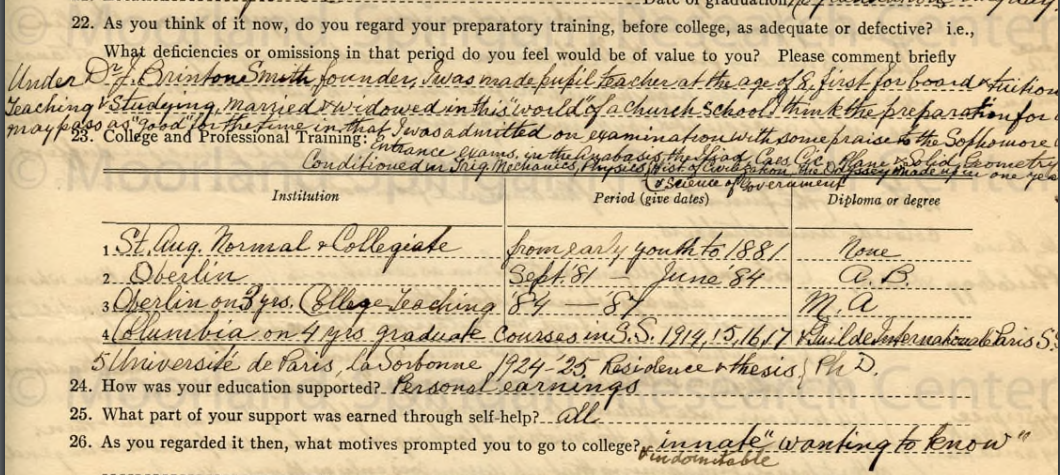 Date of graduation
22. As you think of it now, do you regard your preparatory training, before college, as adequate or defective? i.e.,
What deficiencies or omissions in that period do you feel would be of value to you? Please comment briefly
Under Dr J. Brinton Smith founder, I was made pupil teacher at the age of 8, first for board & tuition
Teaching & Studying, married & widowed in this "world" of a church School I think the preparation for
may pass as "good" for the time in that I was admitted on examination with some praise to the Sophomore
23. College and Professional Training:
Entrance exams. in the Anabasis, the Iliad, Caes. Cic. Plane & Solid Geometry
Conditioned in Trig. Mechanics, Physics, Hist of Civilization, the Odyssey made up in one year
& Science of Government
Institution Period (give dates) Diploma or degree
1 St. Aug. Normal & Collegiate from early youth to 1881 None
2. Oberlin Sept. 81 — June '84 A. B.
3 Oberlin on 3 yrs. College Teaching '84 — '87 M. A
4 Columbia on 4 yrs graduate courses in S.S. 1914, 15, 16, 17 & Guilde Internationale Paris S.S.
5 Université de Paris, la Sorbonne 1924-'25 Residence & thesis } Ph D.
24. How was your education supported? Personal earnings
25. What part of your support was earned through self-help? all
26. As you regarded it then, what motives prompted you to go to college? innate "wanting to know"
& indomitable